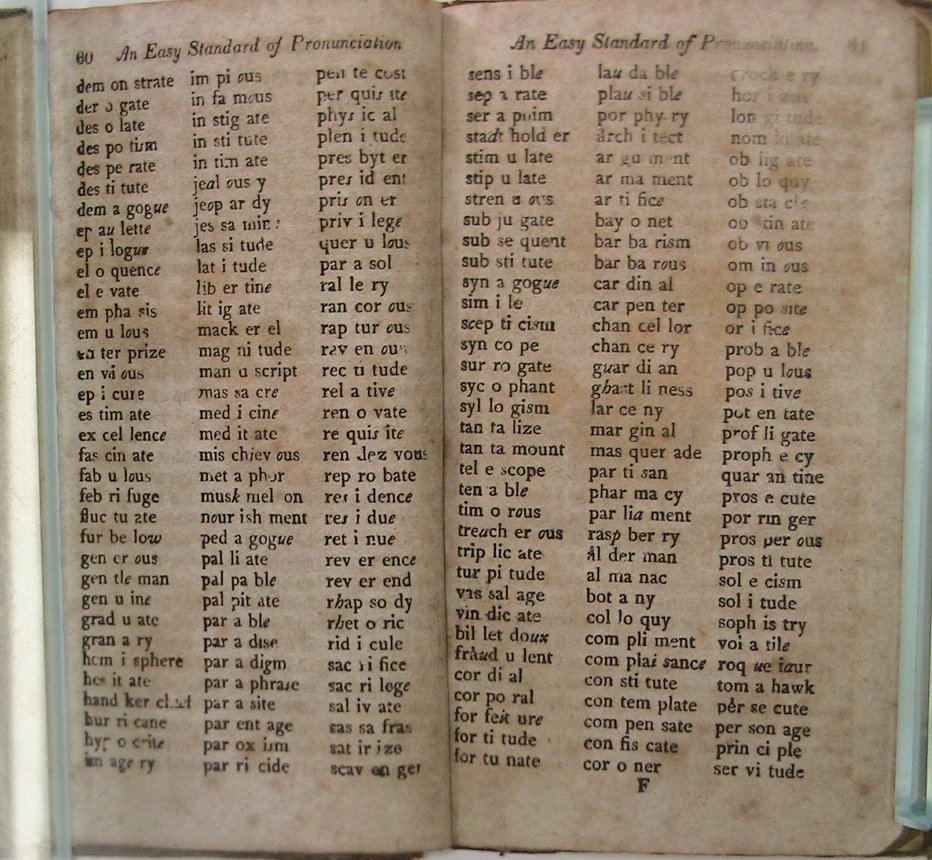 60 An Easy Standard of Pronunciation
dem on strate
der o gate
des o late
des po tism
des pe rate
des ti tute
dem a gogue
ep au lette
ep i logue
el o quence
el e vate
em pha sis
em u lous
en ter prize
en vi ous
ep i cure
es tim ate
ex cel lence
fas cin ate
fab u lous
feb ri fuge
fluc tu ate
fur be low
gen er ous
gen tle man
gen u ine
grad u ate
gran a ry
hem i sphere
hes it ate
hand ker
hur ri cane
hyp o crite
im age ry
im pi ous
in fa mous
in stig ate
in sti tute
in tim ate
jeal ous y
jeop ar dy
jes sa min
las si tude
lat i tude
lib er tine
lit ig ate
mack er el
mag ni tude
man u script
mas sa cre
med i cine
med it ate
mis chiev ous
met a phor
musk mel on
nour ish ment
ped a gogue
pal li ate
pal pa ble
pal pit ate
par a ble
par a dise
par a digm
par a phrase
par a site
par ent age
par ox ism
par ri cide
pen te cost
per quis ite
phys ic al
plen i tude
pres byt er
pres id ent
pris on er
priv i lege
quer u lous
par a sol
ral le ry
ran cor ous
rap tur ous
rav en ous
rec ti tude
rel a tive
ren o vate
re quis ite
ren dez vous
rep ro bate
res i dence
res i due
ret i nue
rev er ence
rev er end
rhap so dy
rhet o ric
rid i cule
sac ri fice
sac ri lege
sal iv ate
sas sa fras
sat ir ize
scav en ger
An Easy Standard of Pronunciation. 61
sens i ble
sep a rate
ser a phim
stadt hold er
stim u late
stip u late
stren u ous
sub ju gate
sub se quent
sub sti tute
syn a gogue
sim i le
scep ti cism
syn co pe
sur ro gate
syc o phant
syl lo gism
tan ta lize
tan ta mount
tel e scope
ten a ble
tim o rous
treach er ous
trip lic ate
tur pi tude
vas sal age
vin dic ate
bil let doux
fràud u lent
cor di al
cor po ral
for feit ure
for ti tude
for tu nate
lau da ble
plau si ble
por phy ry
ärch i tect
ar gu ment
ar ma ment
ar ti fice
bay o net
bar ba rism
bar ba rous
car din al
car pen ter
chan cel lor
chan ce ry
guar di an
ghast li ness
lar ce ny
mar gin al
mas quer ade
par ti san
phar ma cy
par lia ment
rasp ber ry
ål der man
al ma nac
bot a ny
col lo quy
com pli ment
com plai sance
con sti tute
con tem plate
com pen sate
con fis cate
cor o ner
crock e ry
hor i zon
lon gi tude
nom in ate
ob lig ate
ob lo quy
ob sta cle
ob stin ate
ob vi ous
om in ous
op e rate
op po site
or i fice
prob a ble
pop u lous
pos i tive
pot en tate
prof li gate
proph e cy
quar an tine
pros e cute
por rin ger
pros per ous
pros ti tute
sol e cism
sol i tude
soph is try
voi a tile
roq ue laur
tom a hawk
pêr se cute
per son age
prin ci ple
ser vi tude
F